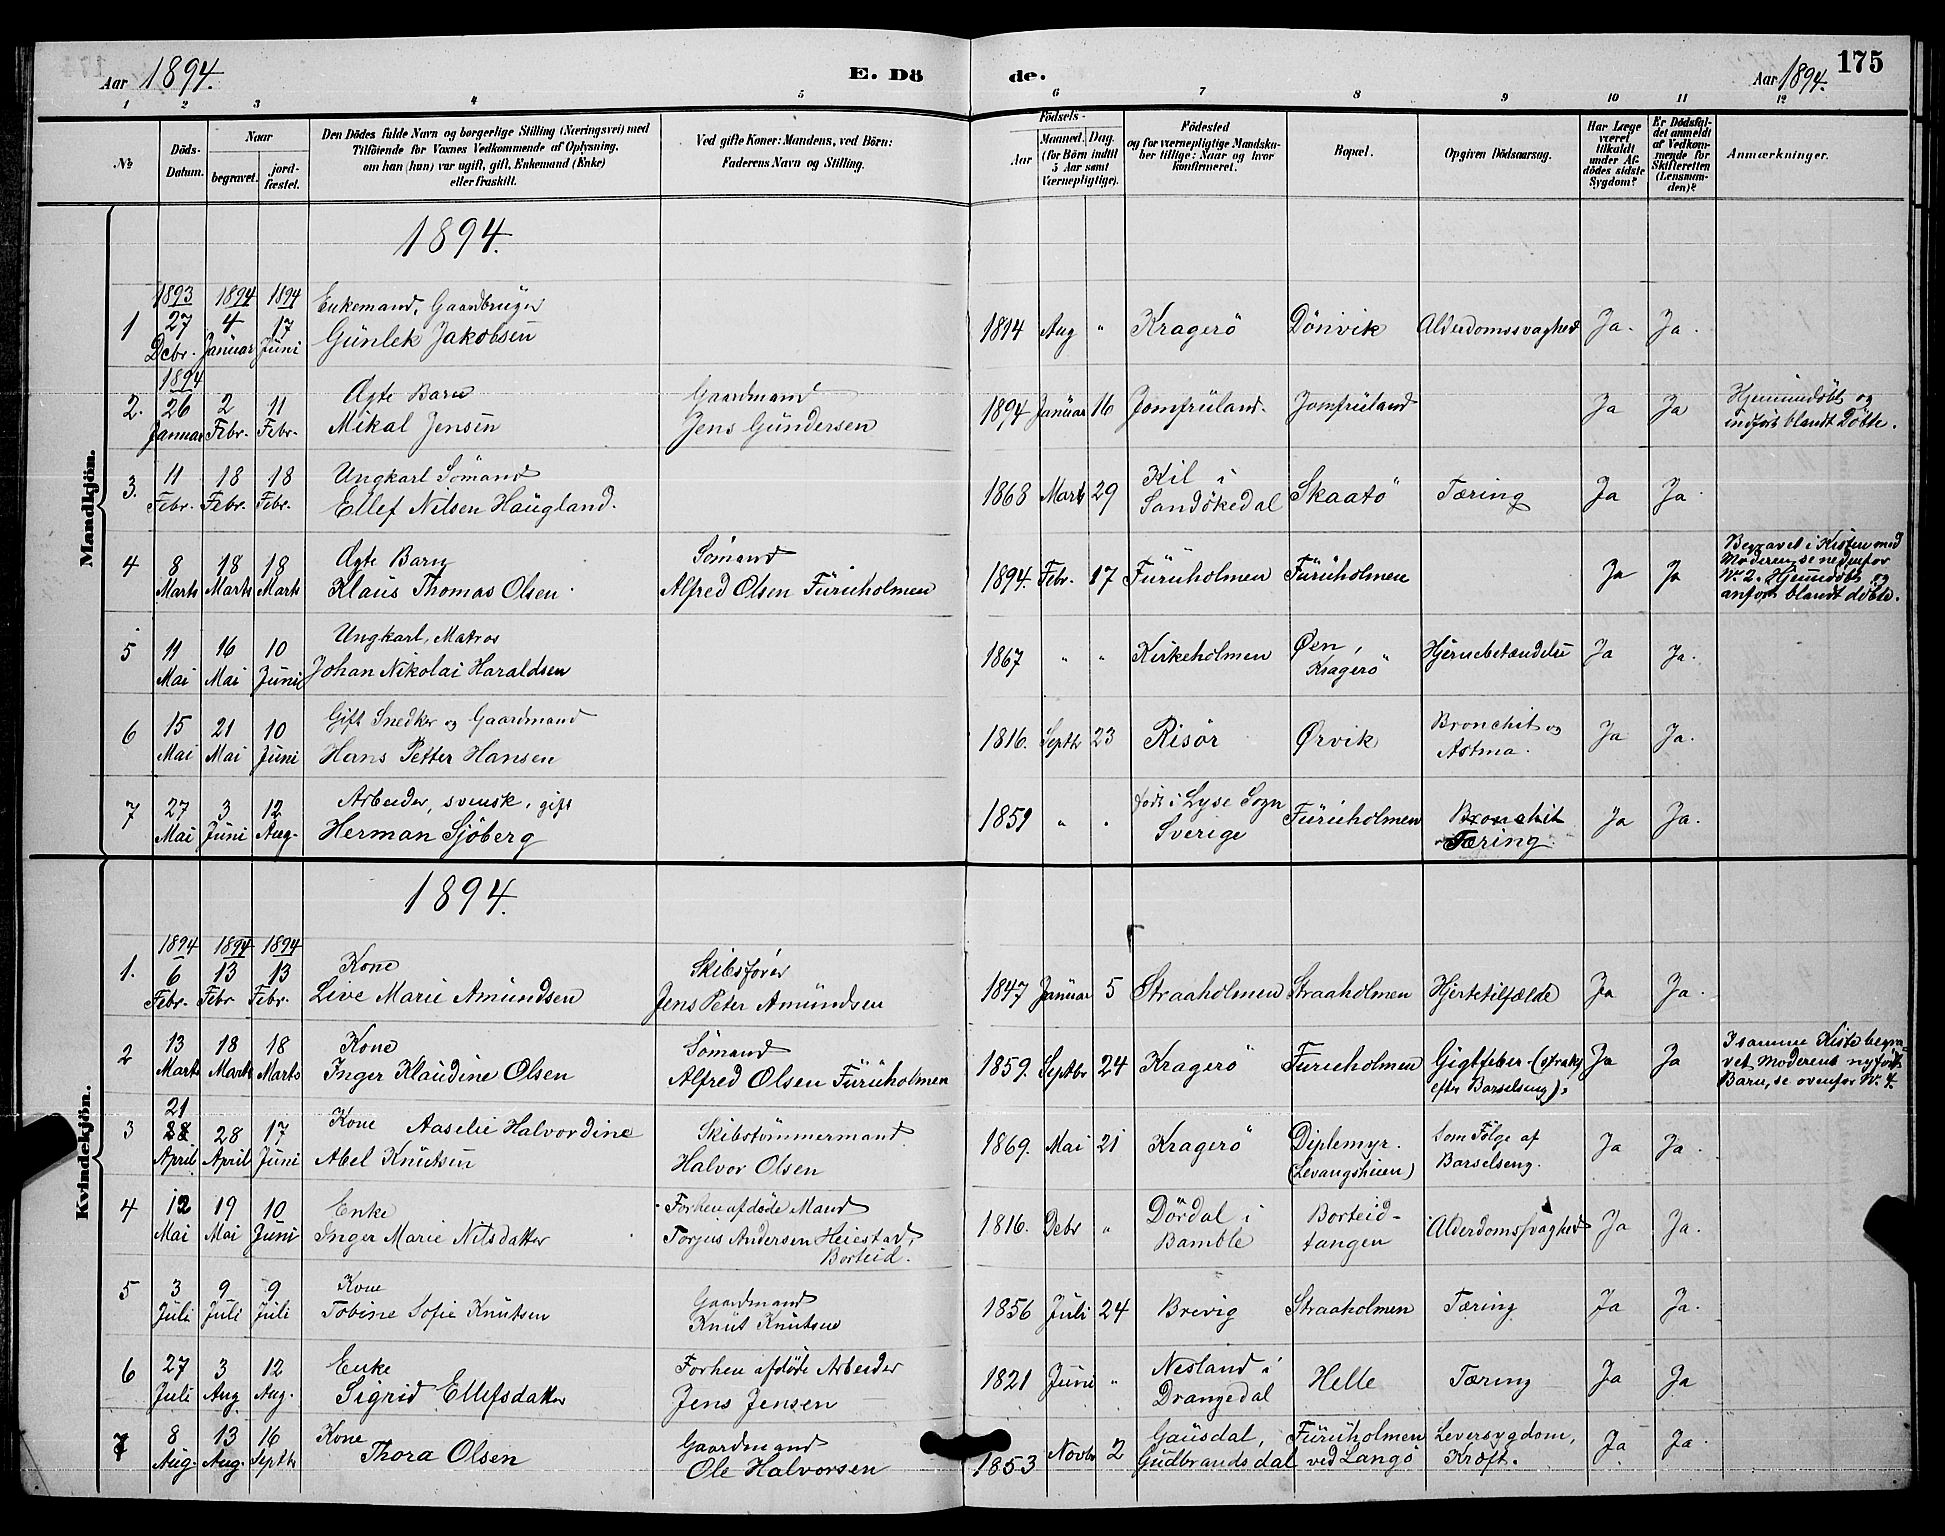 Aar 1894.
E. Dö
de.
Aar 1894.
175
1 2 3 4 5 6 7 8 9 10 11 12
№
Döds-Datum.
Naar
begravet.
jordfæstet.
Den Dödes fulde Navn og borgerlige Stilling (Næringsvei) med
Tilföiende for Voxnes Vedkommende af Oplysning,
om han (hun) var ugift, gift, Enkemand (Enke)
eller fraskilt.
Ved gifte Koner: Mandens, ved Börn:
Faderens Navn og Stilling.
Födsels-
Aar
Maaned.
Dag.
(for Börn indtil
5 Aar samt
Værnepligtige).
Födested
og for værnepligtige Mandska-
ber tillige: Naar og hvor
konfirmeret.
Bopæl.
Opgiven Dödsaarsag.
Har Læge
været
tilkaldt
under Af-
dödes sidste
Sygdom?
Er Dödsfal-
det anmeldt
af Vedkom-
mende for
Skifteretten
(Lensman-
den)?
Anmærkninger.
Mandkjön.
1894.
1893 1894 1894 Enkemand, Gaardbruger
1 27 4 17 Gunlek Jakobsen 1814 Aug " Kragerö Dönvik Alderdomssvaghed Ja. Ja.
Decbr. Januar Juni
1894
2. 26 2 11 Ægte Barn Gaardmand 1894 Januar 16 Jomfruland. Jomfruland Ja Ja Hjemmedöbt og
Januar Febr. Febr. Mikal Jensen Jens Gundersen indfört blandt Döbte.
3. 11 18 18 Ungkarl Sömand 1868 Marts 29 Kil i Skaatö Tæring Ja Ja
Febr. Febr. Febr. Ellef Nilsen Haugland. Sandökedal
4 8 18 18 Ægte Barn Sömand 1894. Febr. 17 Furuholmen Furuholmen Ja Ja Begravet i Kisten med
Marts Marts Marts Klaus Thomas Olsen Alfred Olsen Furuholmen Moderen, se nedenfor
№ 2. Hjemmedöbt og
anfört blandt döbte.
5 11 16 10 Ungkarl, Matros 1867 " " Kirkeholmen Øen, Hjernebetændelse Ja Ja.
Mai Mai Juni Johan Nikolai Haraldsen Kragerö
6 15 21 10 Gift Snedker og Gaardmand 1816. Septb 23 Risör Ørvik Bronchit og Ja Ja.
Mai Mai Juni Hans Petter Hansen Astma.
7 27 3 12 Arbeider, svensk, gift 1859 " " föd i Lyse Sogn Furuholmen Bronchit Ja Ja.
Mai Juni Aug. Herman Sjöberg Sverige Tæring
Kvindekjön.
1894.
1894 1894 1894
1. 6 13 13 Kone Skibsförer 1847 Januar 5 Straaholmen Straaholmen Hjertetilfælde Ja Ja.
Febr. Febr Febr. Live Marie Amundsen Jens Peter Amundsen
2 13 18 18 Kone Sömand 1859. Septbr 24 Kragerö Furuholmen Gigtfeber (straks Ja Ja I samme Kiste begra-
Marts Marts Marts Inger Klaudine Olsen Alfred Olsen Furuholmen efter Barselseng). vet Moderens nyfödte
Barn, se ovenfor № 4.
21
3 28 28 17 Kone Aaselie Halvordine Skibstömmermand 1869. Mai 21 Kragerö Diplemyr. Som Fölge af Ja Ja.
April April Juni Abel Knutsen Halvor Olsen (Levangsheien) Barselseng.
4 12 19 10 Enke Forhen afdöde Mand 1816. Debr " Dördal i Borteid- Alderdomssvaghed Ja Ja.
Mai Mai Juni Inger Marie Nilsdatter Torjus Andersen Heiestad, Bamble tangen
Borteid.
5 3 9 9 Kone Gaardmand 1856 Juli 24 Brevig Straaholmen Tæring Ja Ja.
Juli Juli Juli Tobine Sofie Knutsen Knut Knutsen
6 27 3 12 Enke Forhen afdöde Arbeider 1821 Juni " Nesland i Helle Tæring Ja Ja
Juli Aug Aug. Sigrid Ellefsdatter Jens Jensen Drangedal
7 8 13 16 Kone Gaardmand 1853 Novbr 2 Gausdal, Furuholmen Leversygdom, Ja Ja
Aug. Aug. Septb Thora Olsen Ole Halvorsen Gudbrandsdal ved Langö Kræft.